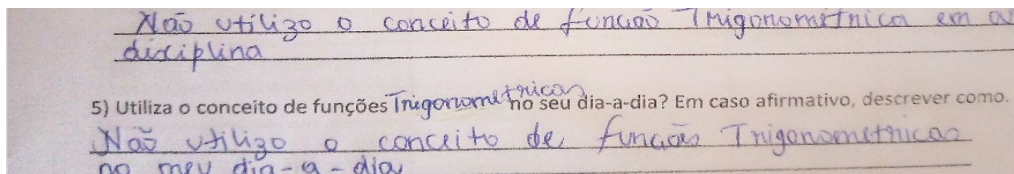 Não utilizo o conceito de função Trigonometrica em
disciplina
5) Utiliza o conceito de funções Trigonometricas no seu dia-a-dia? Em caso afirmativo, descrever como.
Não utilizo o conceito de funcões Trigonometricas
no meu dia-a-dia